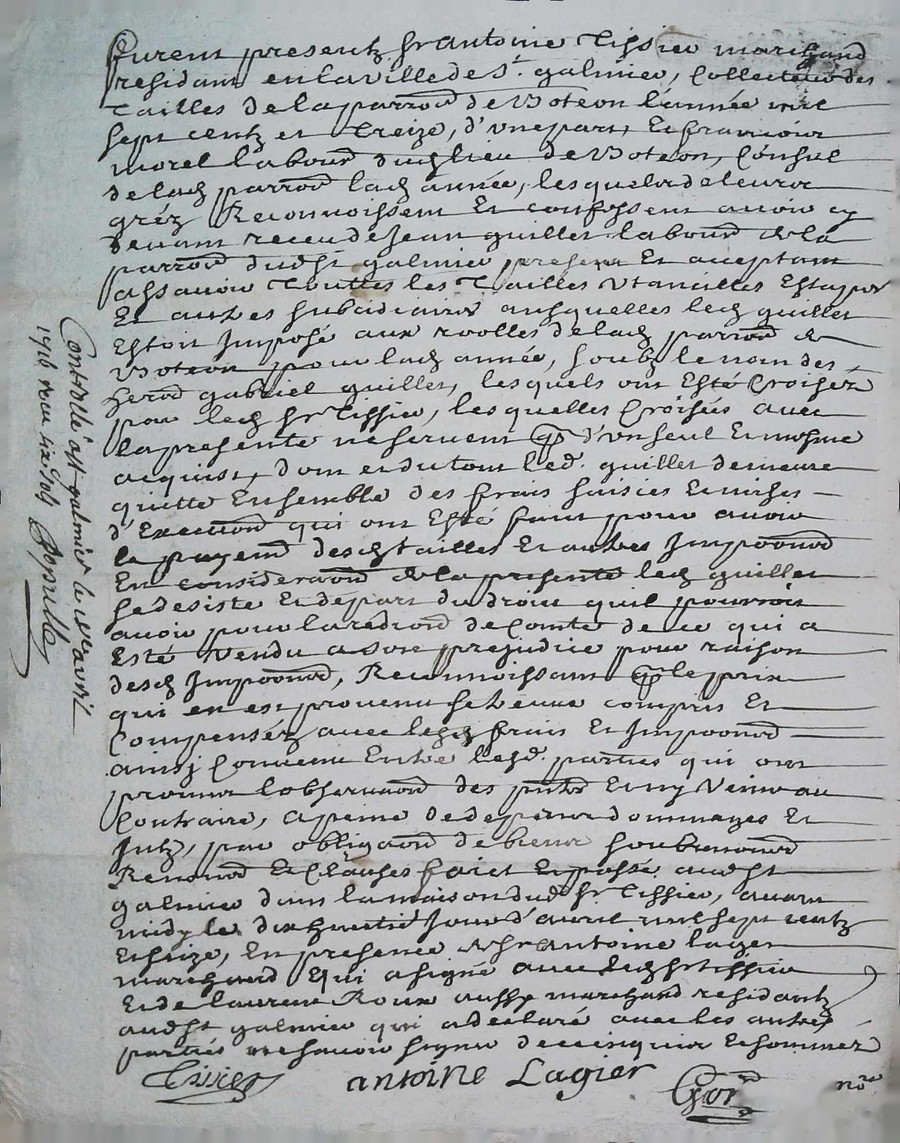 furent presentz sr antoine Tissier marchand
residant en la ville de St. galmier, Collecteur des
Tailles de la parroe de Boteon l'année mil
sept centz et Treize, d'une part, Et francois
morel labour dud lieu de Boteon, Consul
de lad parroe lad année, lesquels de leurs
gréz Reconnoissent Et confessent avoir cy
devant receu de Jean quillet labour de la
parroe dud St galmier present Et acceptant
assavoir Touttes les Tailles Utancilles Estapes
Et autres subsidiaires ausquelles led quillet
Estoit Imposé aux roolles de lad parroe de
Boteon pour lad année, soubz le nom des
gabriel quillet, lesquels ont Esté Croisez
par led sr Tissier, lesquelles Croisées avec
la presente ne servent qe d'un seul Et mesme
acquist, dont et du tout led. quillet demeure
quitte Ensemble des frais saisies Et mises
d'Execuon qui ont Esté faits pour avoir
le payemt desd tailles Et autres Impoons
En consideraon de la presente led quillet
se desiste Et depart du droit quil pourroit
avoir pour la redion de Comte de ce qui a
Esté Vendu a son prejudice pour raison
desd Impoons, Reconnoissant qe le prix
qui en est provenu se treuve compris Et
Compensez avec lesd frais Et Impoons
ainsj Convenu Entre lesd. parties qui ont
promis lobservaon des pntes Et ny Venir au
Contraire, a peine de despens dommages Et
Intz, par obligaon de biens soubmissons
Renons Et Clauses faict Et passé aud St
galmier dans la maison dud sr Tissier, avant
midy le dixhuitie Jour d'avril mil sept centz
Et seize, En presence de sr antoine lagier
marchand Qui a signé avec led sr tissier
Et de laurent Roux aussy marchand residantz
aud St galmier qui a declaré avec les autres
parties ne scavoir signer de ce enquis Et sommez
Tissier antoine Lagier nore
Controllé a st galmier le avril
1716 receu six sols